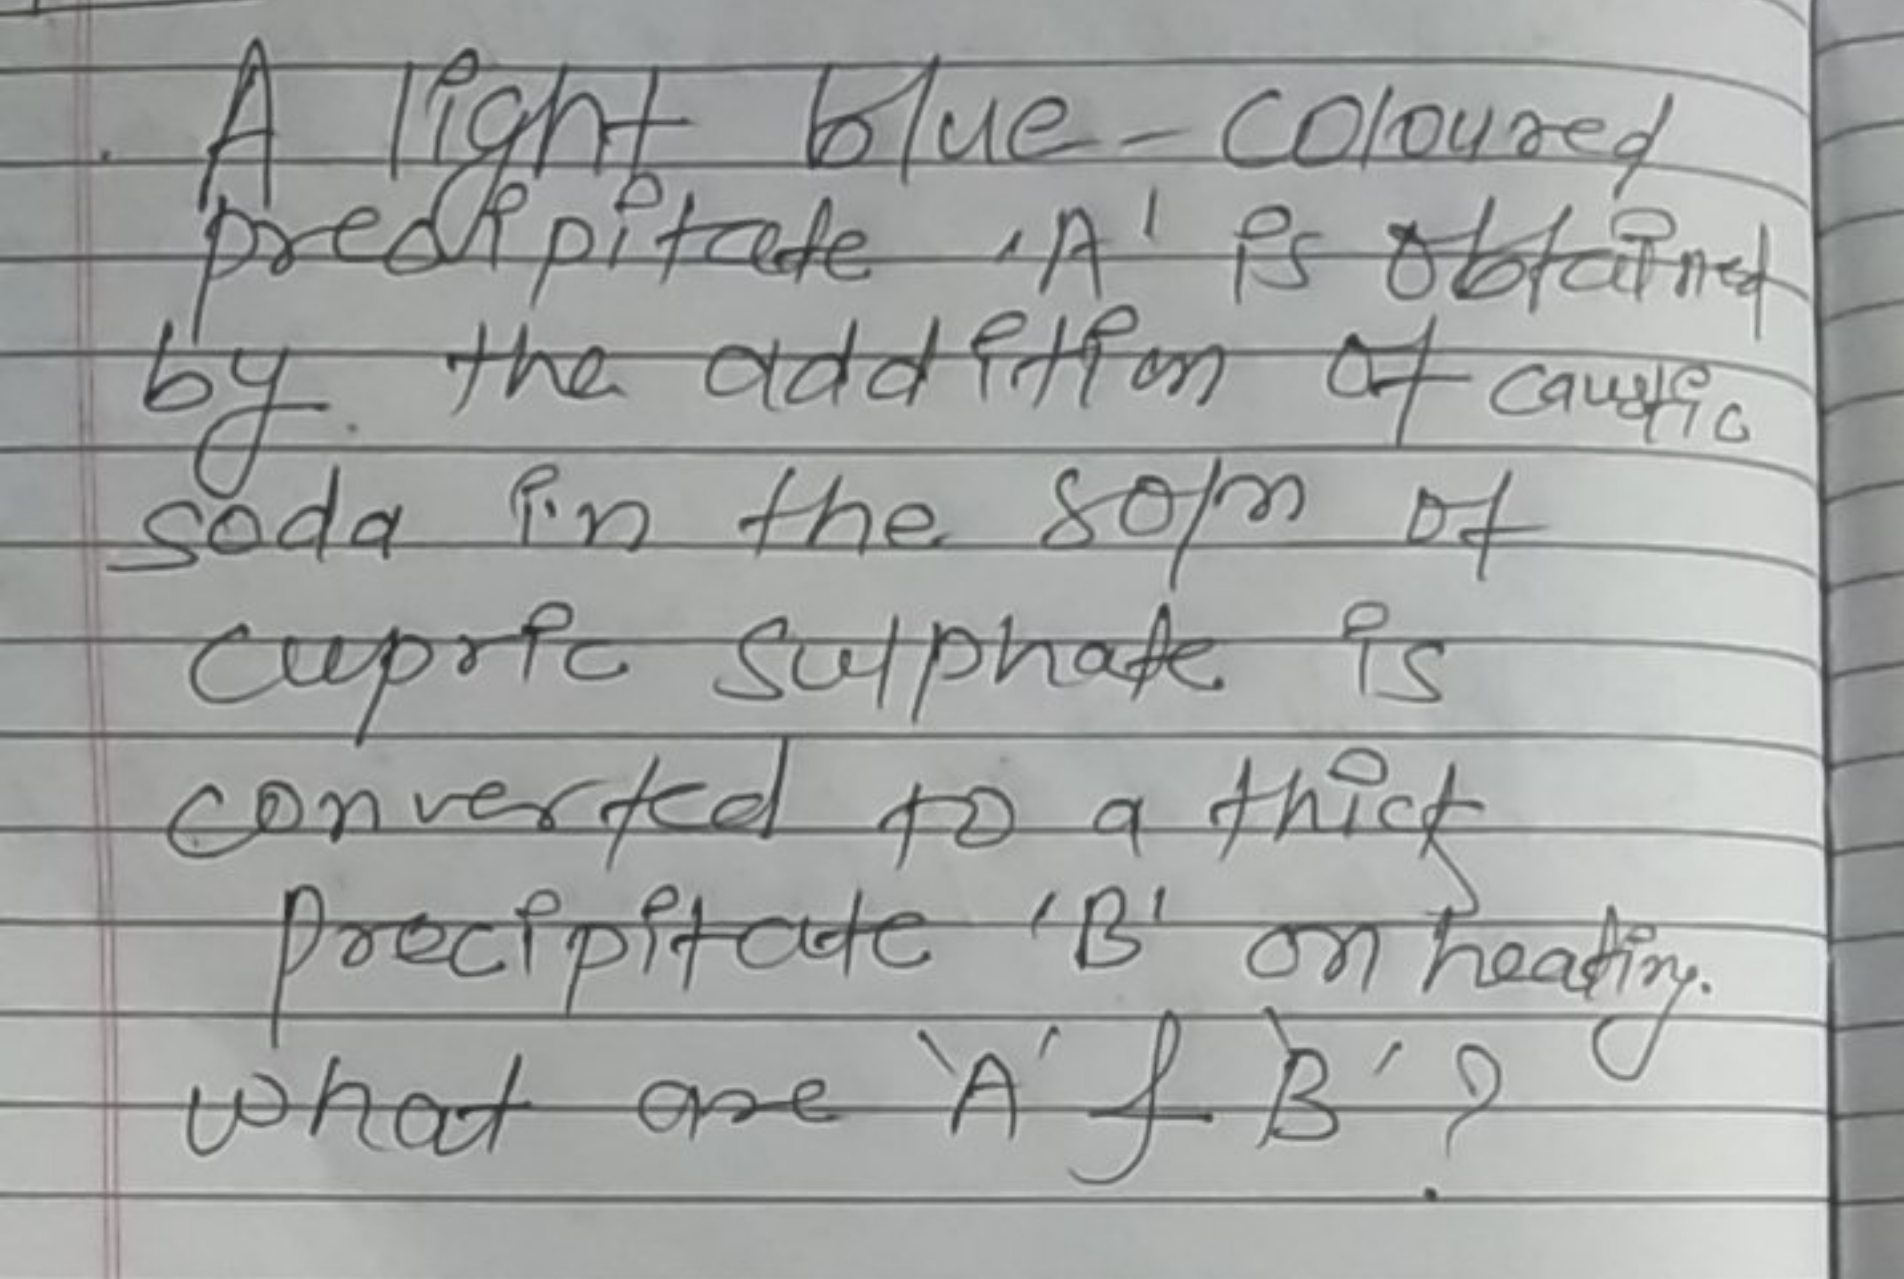 A light blue-coloured
precipitate 'A' is obtained
by the addition of caustic
soda in the soln of
cupric sulphate is
converted to a thick
precipitate 'B' on heating.
what are 'A' & 'B'?